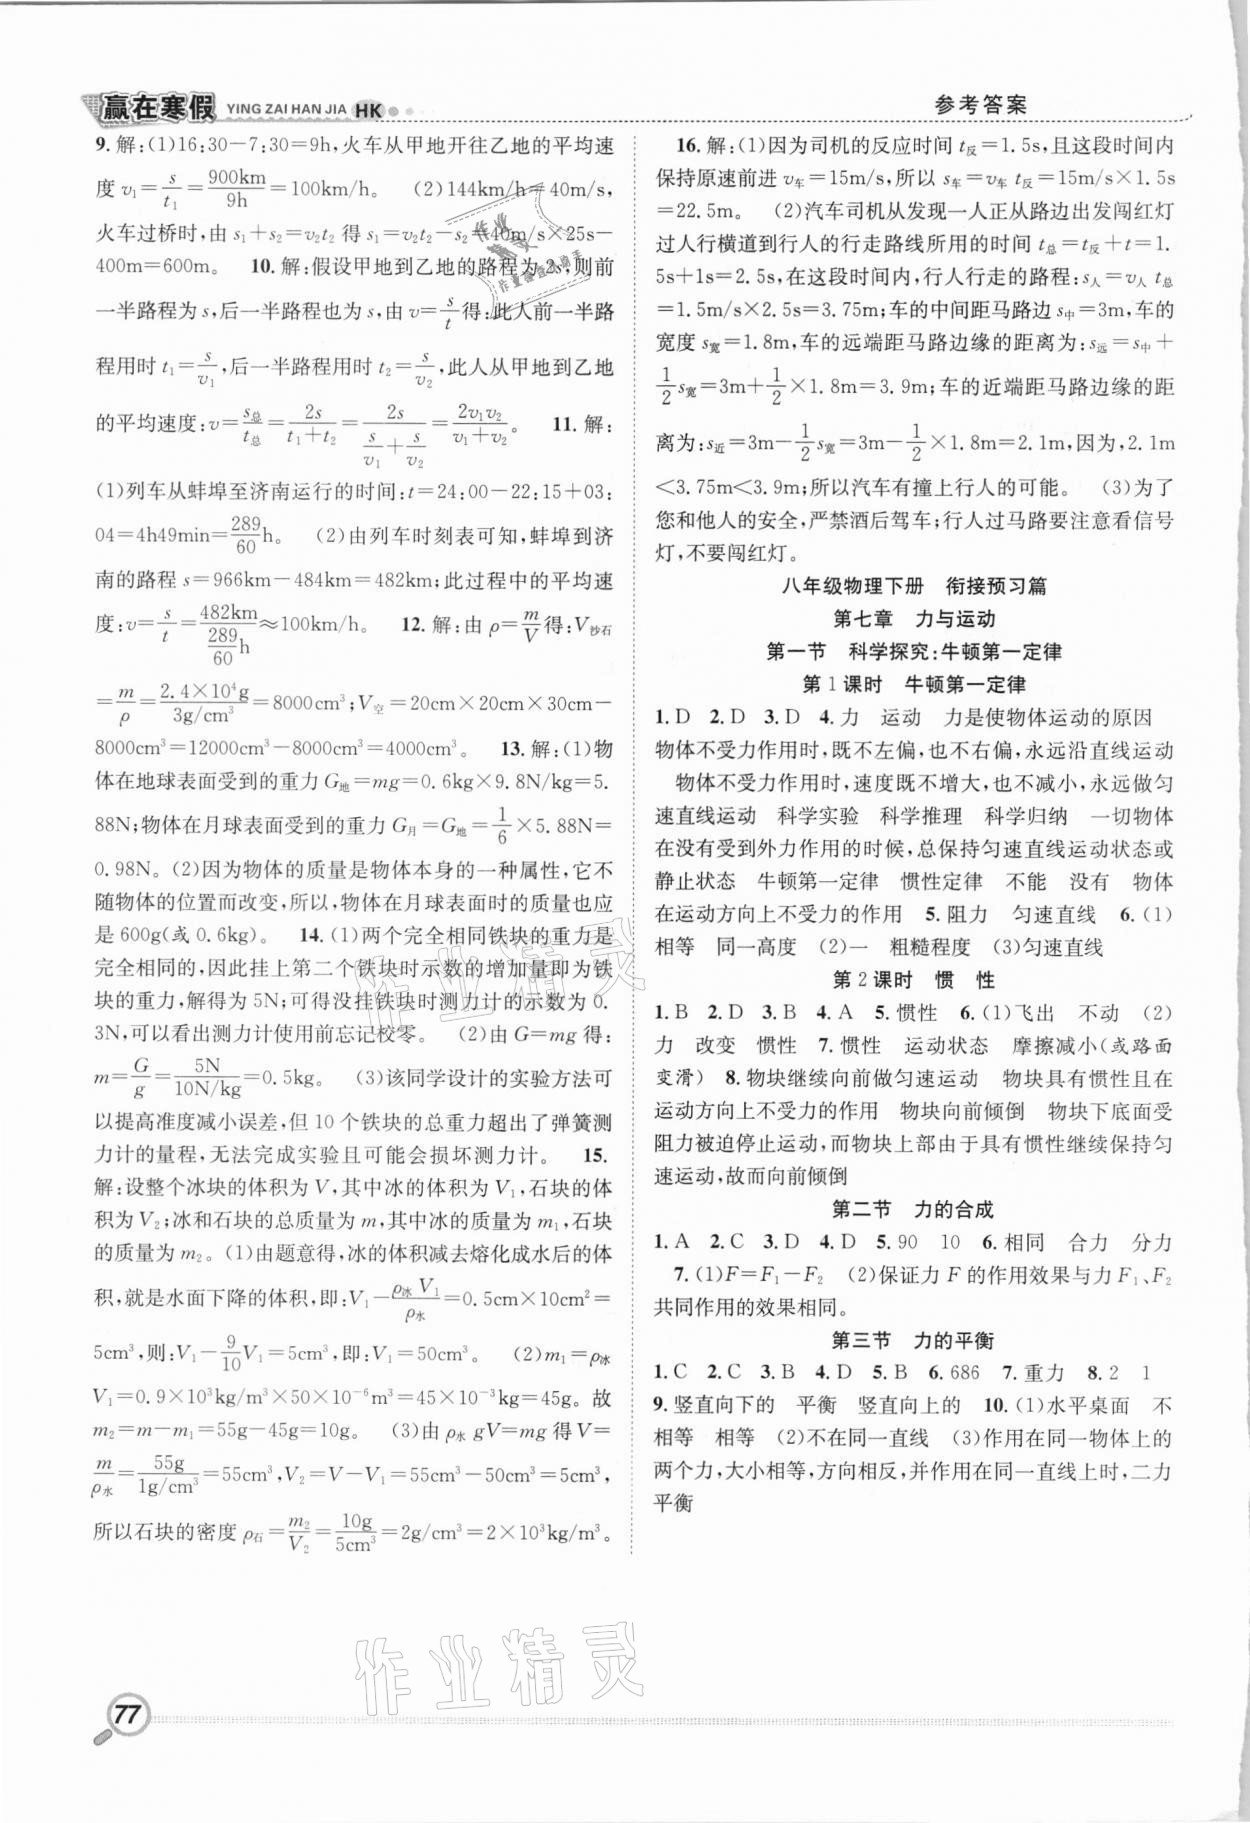 赢在寒假 YING ZAI HAN JIA HK
参考答案
9.解:(1)16:30-7:30=9h,火车从甲地开往乙地的平均速
度 v₁=s/t₁=900km/9h=100km/h。 (2)144km/h=40m/s,
火车过桥时,由 s₁+s₂=v₂t₂ 得 s₁=v₂t₂-s₂=40m/s×25s-
400m=600m。 10.解:假设甲地到乙地的路程为2s,则前
一半路程为 s,后一半路程也为 s,由 v=s/t得:此人前一半路
程用时 t₁=s/v₁,后一半路程用时 t₂=s/v₂,此人从甲地到乙地
的平均速度:v=s总/t总=2s/(t₁+t₂)=2s/(s/v₁+s/v₂)=2v₁v₂/(v₁+v₂)。 11.解:
(1)列车从蚌埠至济南运行的时间:t=24:00-22:15+03:
04=4h49min=289/60h。 (2)由列车时刻表可知,蚌埠到济
南的路程 s=966km-484km=482km;此过程中的平均速
度:v=s/t=482km/(289/60)h≈100km/h。 12.解:由 ρ=m/V得:V沙石
=m/ρ=2.4×10⁴g/3g/cm³=8000cm³;V空=20cm×20cm×30cm-
8000cm³=12000cm³-8000cm³=4000cm³。 13.解:(1)物
体在地球表面受到的重力 G地=mg=0.6kg×9.8N/kg=5.
88N;物体在月球表面受到的重力 G月=G地=1/6×5.88N=
0.98N。(2)因为物体的质量是物体本身的一种属性,它不
随物体的位置而改变,所以,物体在月球表面时的质量也应
是600g(或0.6kg)。 14.(1)两个完全相同铁块的重力是
完全相同的,因此挂上第二个铁块时示数的增加量即为铁
块的重力,解得为5N;可得没挂铁块时测力计的示数为0.
3N,可以看出测力计使用前忘记校零。 (2)由 G=mg 得:
m=G/g=5N/10N/kg=0.5kg。 (3)该同学设计的实验方法可
以提高准度减小误差,但10个铁块的总重力超出了弹簧测
力计的量程,无法完成实验且可能会损坏测力计。 15.
解:设整个冰块的体积为V,其中冰的体积为V₁,石块的体
积为V₂;冰和石块的总质量为m,其中冰的质量为m₁,石块
的质量为m₂。(1)由题意得,冰的体积减去熔化成水后的体
积,就是水面下降的体积,即:V₁-ρ冰V₁/ρ水=0.5cm×10cm²=
5cm³,则:V₁-9/10V₁=5cm³,即:V₁=50cm³。 (2)m₁=ρ冰
V₁=0.9×10³kg/m³×50×10⁻⁶m³=45×10⁻³kg=45g。故
m₂=m-m₁=55g-45g=10g。 (3)由 ρ水gV=mg 得 V=
m/ρ水=55g/1g/cm³=55cm³,V₂=V-V₁=55cm³-50cm³=5cm³,
所以石块的密度 ρ石=m₂/V₂=10g/5cm³=2g/cm³=2×10³kg/m³。
16.解:(1)因为司机的反应时间 t反=1.5s,且这段时间内
保持原速前进 v车=15m/s,所以 s车=v车 t反=15m/s×1.5s
=22.5m。 (2)汽车司机从发现一人正从路边出发闯红灯
过人行横道到行人的行走路线所用的时间 t总=t反+t=1.
5s+1s=2.5s,在这段时间内,行人行走的路程:s人=v人 t总
=1.5m/s×2.5s=3.75m;车的中间距马路边 s中=3m,车的
宽度 s宽=1.8m,车的远端距马路边缘的距离为:s远=s中+
1/2s宽=3m+1/2×1.8m=3.9m;车的近端距马路边缘的距
离为:s近=3m-1/2s宽=3m-1/2×1.8m=2.1m,因为,2.1m
<3.75m<3.9m;所以汽车有撞上行人的可能。 (3)为了
您和他人的安全,严禁酒后驾车;行人过马路要注意看信号
灯,不要闯红灯。
八年级物理下册 衔接预习篇
第七章 力与运动
第一节 科学探究:牛顿第一定律
第1课时 牛顿第一定律
1.D 2.D 3.D 4.力 运动 力是使物体运动的原因
物体不受力作用时,既不左偏,也不右偏,永远沿直线运动
物体不受力作用时,速度既不增大,也不减小,永远做匀
速直线运动 科学实验 科学推理 科学归纳 一切物体
在没有受到外力作用的时候,总保持匀速直线运动状态或
静止状态 牛顿第一定律 惯性定律 不能 没有 物体
在运动方向上不受力的作用 5.阻力 匀速直线 6.(1)
相等 同一高度 (2)一 粗糙程度 (3)匀速直线
第2课时 惯 性
1.B 2.D 3.B 4.A 5.惯性 6.(1)飞出 不动 (2)
力 改变 惯性 7.惯性 运动状态 摩擦减小(或路面
变滑) 8.物块继续向前做匀速运动 物块具有惯性且在
运动方向上不受力的作用 物块向前倾倒 物块下底面受
阻力被迫停止运动,而物块上部由于具有惯性继续保持匀
速运动,故而向前倾倒
第二节 力的合成
1.A 2.C 3.D 4.D 5.90 10 6.相同 合力 分力
7.(1)F=F₁-F₂ (2)保证力F的作用效果与力F₁、F₂
共同作用的效果相同。
第三节 力的平衡
1.C 2.C 3.B 4.D 5.B 6.686 7.重力 8.2 1
9.竖直向下的 平衡 竖直向上的 10.(1)水平桌面 不
相等 相等 (2)不在同一直线 (3)作用在同一物体上的
两个力,大小相等,方向相反,并作用在同一直线上时,二力
平衡
作业精灵
作业精灵
77